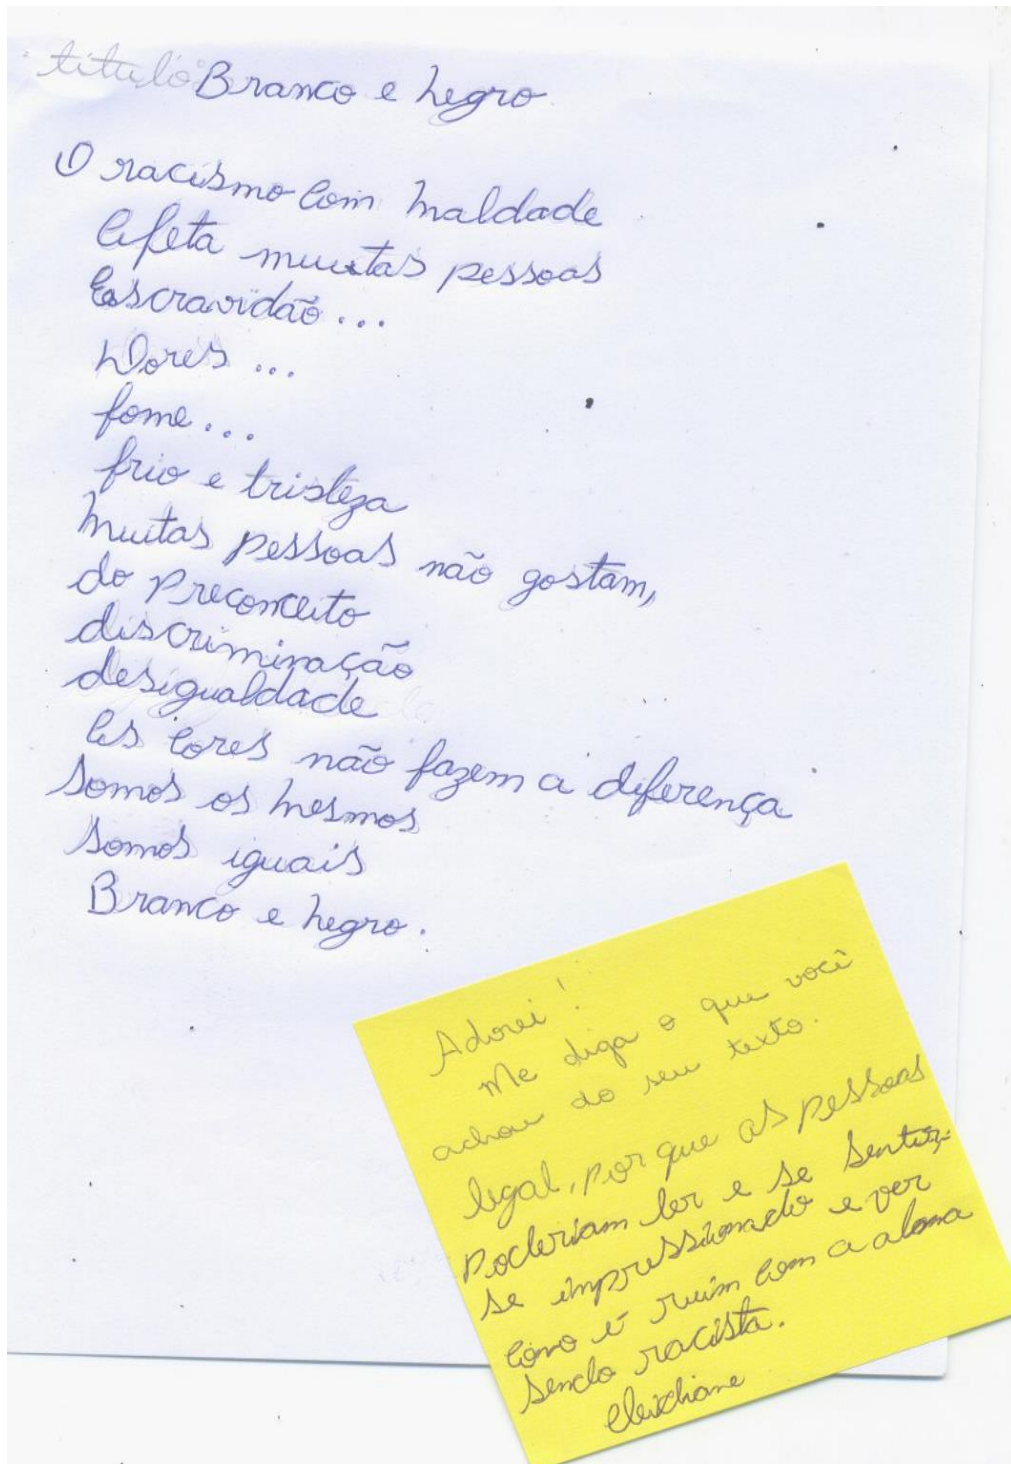 título: Branco e negro
O racismo com maldade
Afeta muitas pessoas
Escravidão...
Dores...
fome...
frio e tristeza
muitas pessoas não gostam,
do preconceito
discriminação
desigualdade
As cores não fazem a diferença
somos os mesmos
somos iguais
Branco e negro.
Adorei!
Me diga o que você
achou do seu texto.
legal, por que as pessoas
poderiam ler e se sentir-
se impressionado e ver
como é ruim com a alma
sendo racista.